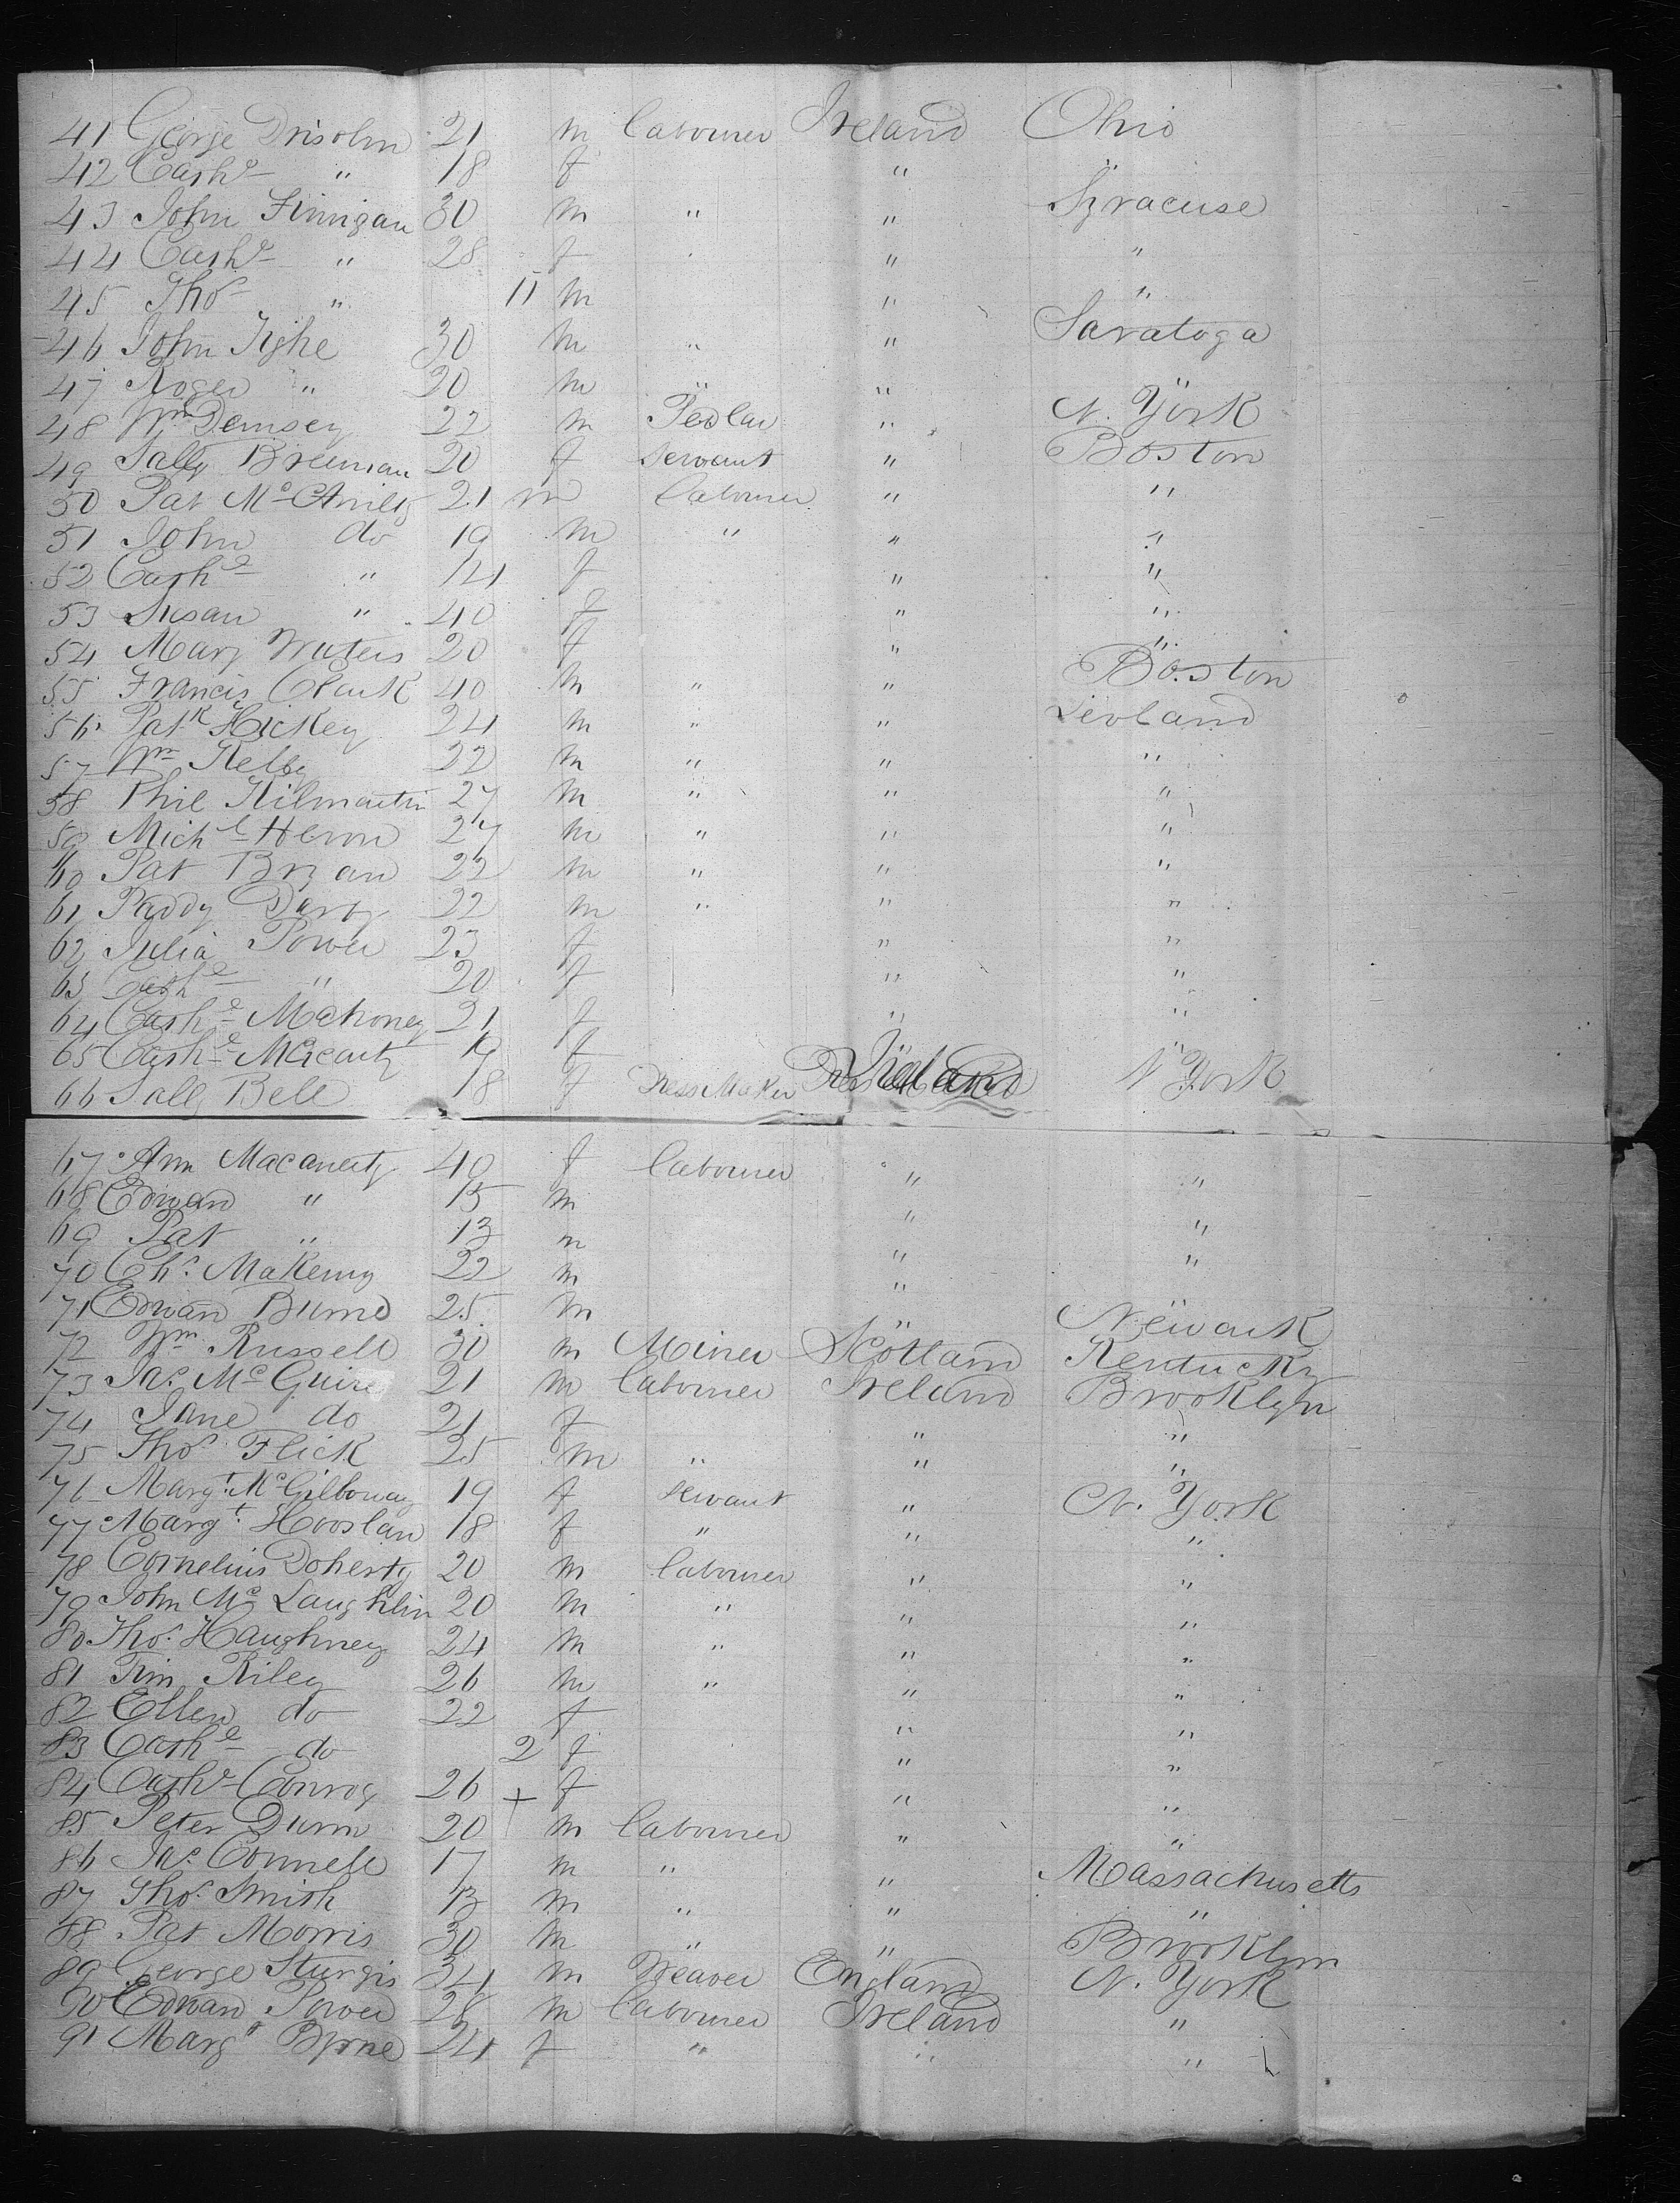 41 George Drisolm 21 m labourer Ireland Ohio
42 Cath^e " 18 f "
43 John Finnigan 30 m " " Syracuse
44 Cath^e " 28 f " "
45 Tho^s " 11 m " "
46 John Tighe 30 m " " Saratoga
47 Roger " 20 m " " "
48 W^m Demsey 22 m Pedlar " N. York
49 Sally Brennan 20 f Servant " Boston
50 Pat 21 m labourer " "
51 John do 19 m " " "
52 Cath^e " 14 f " "
53 Susan " 40 f " "
54 Mary Waters 20 f " "
55 Francis Clark 40 m " " Boston
56 Pat^k Hickey 24 m " "
57 W^m Kelly 22 m " " "
58 Phil Kilmartin 27 m " " "
59 Mich^l Heron 27 m " " "
60 Pat Bryan 22 m " " "
61 Paddy Darby 22 m " " "
62 Julia Power 23 f " "
63 Cath^e " 20 f " "
64 Cath^e Mahoney 21 f " "
65 Cath^e 19 f "
66 Sally Bell 18 f Dress Maker Ireland N York
67 Ann 40 f labourer " "
68 Edward " 15 m "
69 Pat " 13 m " "
70 Ch^s. MaKenny 22 m " "
71 Edward 25 m " Newark
72 W^m Russell 30 m Miner Scotland Kentucky
73 Ja^s McGuire 21 m labourer Ireland Brooklyn
74 Jane do 21 f " "
75 Tho^s Flick 25 m " " "
76 Marg^t. McGilloway 19 f Servant " N. York
77 Marg^t. 18 f " " "
78 Cornelius Doherty 20 m labourer " "
79 John McLaughlin 20 m " " "
80 Tho^s. Haughney 24 m " " "
81 Tim Riley 26 m " " "
82 Ellen do 22 f " "
83 Cath^e do 2 f " "
84 Cath^e Conroy 26 + f " "
85 Peter Dunn 20 m labourer " "
86 Ja^s Connell 17 m " " Massachusetts
87 Tho^s. Smith 13 m " " "
88 Pat Morris 30 m " " Brooklyn
89 George Sturgis 34 m Weaver England N. York
90 Edward Power 26 m labourer Ireland "
91 Marg^t Byrne 24 f " " "